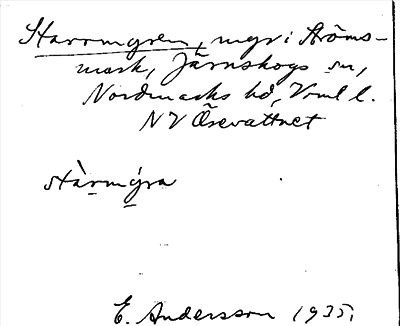 Starrmyren, myr i Ströms-
mark, Järnskogs sn,
Nordmarks hd, Vrml l.
NV Örevattnet
stàrmýra
E. Andersson 1935.